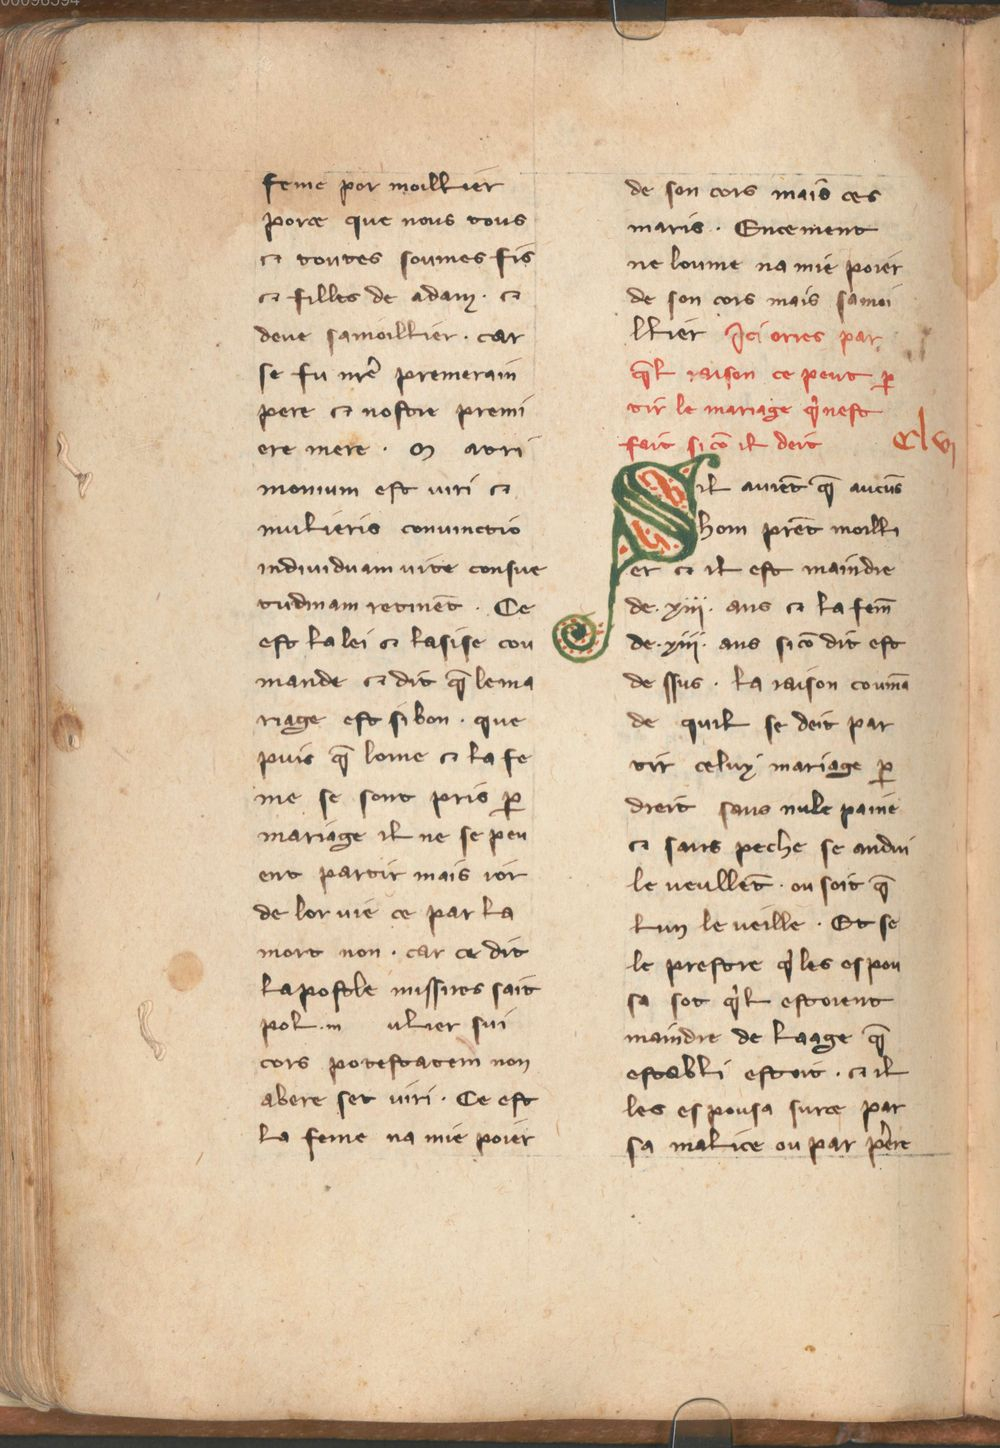 feme por moillier
porce que nous tous
⁊ toutes soumes fis
⁊ filles de adam · ⁊
deue samoillier · car
se fu nr̄e premerain
pere ⁊ nostre premi
ere mere · M atri
monium est uiri ⁊
mulieris coniunctio
indiuiduam uite consue
tudinam retinēt · Ce
est la lei ⁊ lasise cou
mande ⁊ dit q̄ lema
riage est si bon · que
puis q̄ lome ⁊ la fe
me se sont pris ꝑ
mariage il ne se peu
ent partir mais ior
de lor vie ce par la
mort non · car ce dit
lapostle missires saīt
pol · m ulier sui
cors potestatem non
abere set uiri · Ce est
la feme na mie poier
de son cors mais ces
maris · Encement
ne loume na mie poier
de son cors mais samoi
llier Ici orres par
q̄l raison ce peut ꝑ
tir le mariage q̉ nest
fait si cō il deit
Clvi
Sil auiēt q̄ aucūs
hom prēt moilli
er ⁊ il est maindre
de · xiii · ans ⁊ la fem̄
de · xiii · ans si cō dit est
de ssus · la raison coum̄a
de quil se deit par
tir celuy mariage ꝑ
dreit sans nule paine
⁊ sans peche se andui
le ueullēt · ou soit q̄
lun le ueille · Et se
le prestre q̉ les espou
sa sot q̉l estoient
maindre de laage q̄
establi estoit · ⁊ il
les espousa surce par
sa malice ou par p̉ere